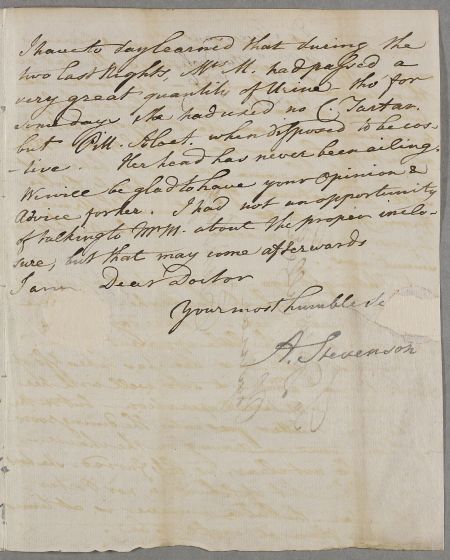 I have to day learned that during the
two last Nights, Mrs M. had passed a
very great quantity of Urine tho' for
some days she had used no C Tartar.
but Pill. Aloet. when disposed to be cos-
-tive. Her head has never been ailing.
We will be glad to have your Opinion &
Advice for her. I had not an opportunity
of talking to Mr M. about the proper inclo-
sure, but that may come afterwards
I am Dear Doctor
Your most humble Se
A. Stevenson